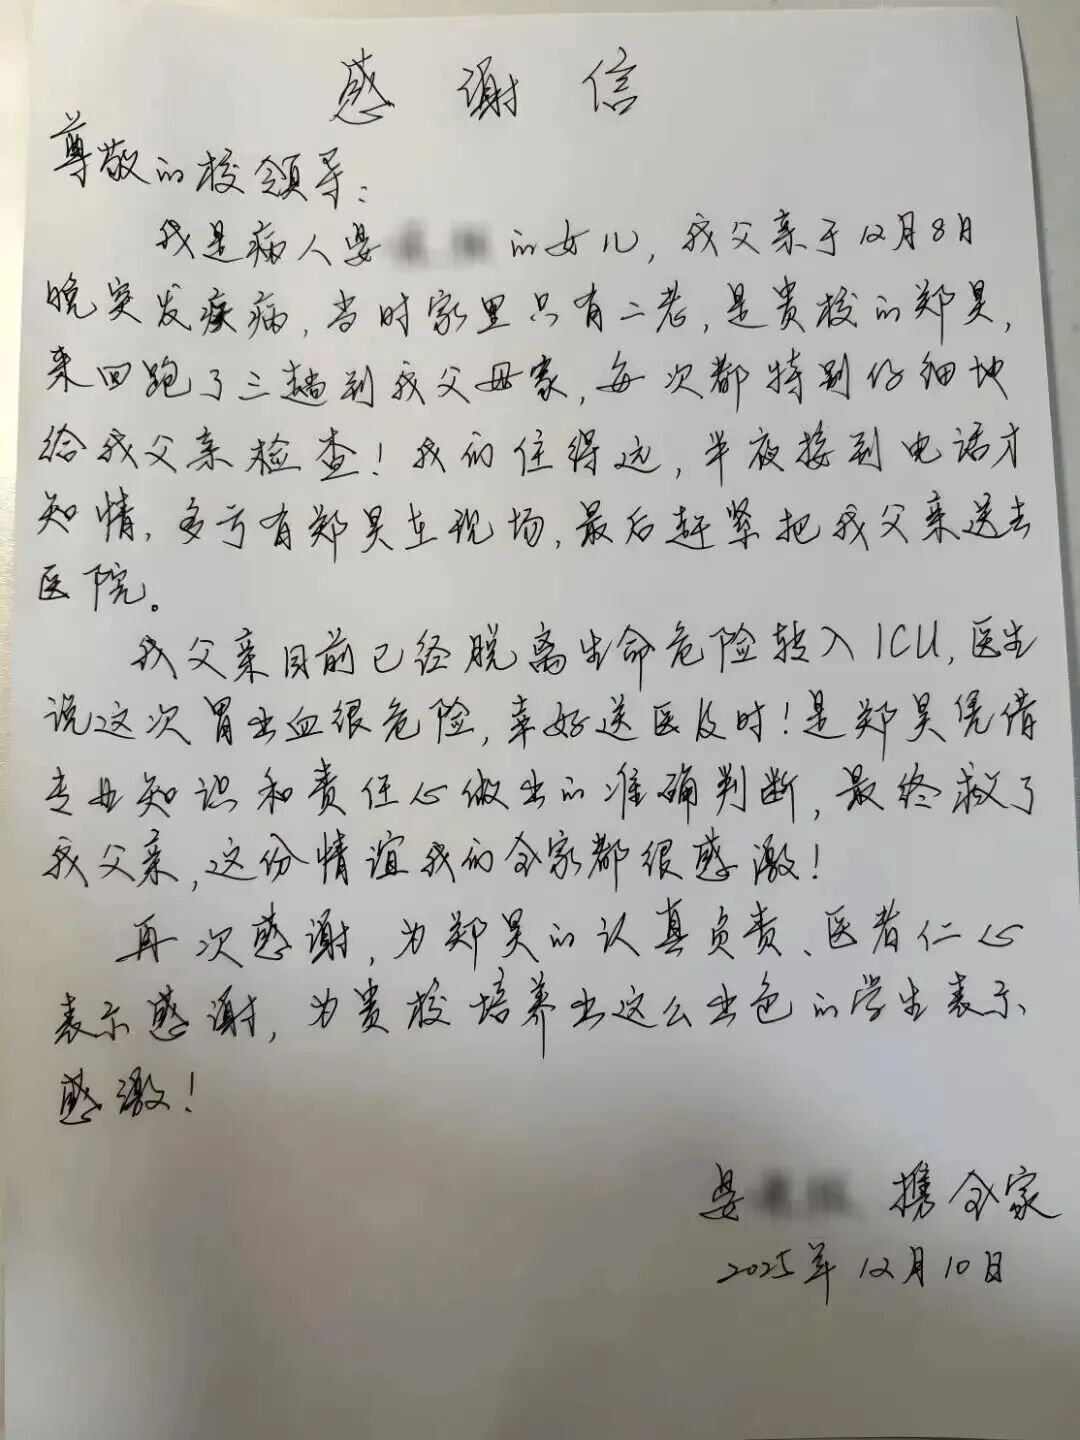 感谢信
尊敬的校领导：
我是病人晏的女儿，我父亲于12月8日
晚突发疾病，当时家里只有二老，是贵校的郑昊，
来回跑了三趟到我父母家，每次都特别仔细地
给我父亲检查！我们住得远，半夜接到电话才
知情，多亏有郑昊在现场，最后赶紧把我父亲送去
医院。
我父亲目前已经脱离生命危险转入ICU，医生
说这次胃出血很危险，幸好送医及时！是郑昊凭借
专业知识和责任心做出的准确判断，最终救了
我父亲，这份情谊我们全家都很感激！
再次感谢，为郑昊的认真负责、医者仁心
表示感谢，为贵校培养出这么出色的学生表示
感激！
晏 携全家
2025年12月10日